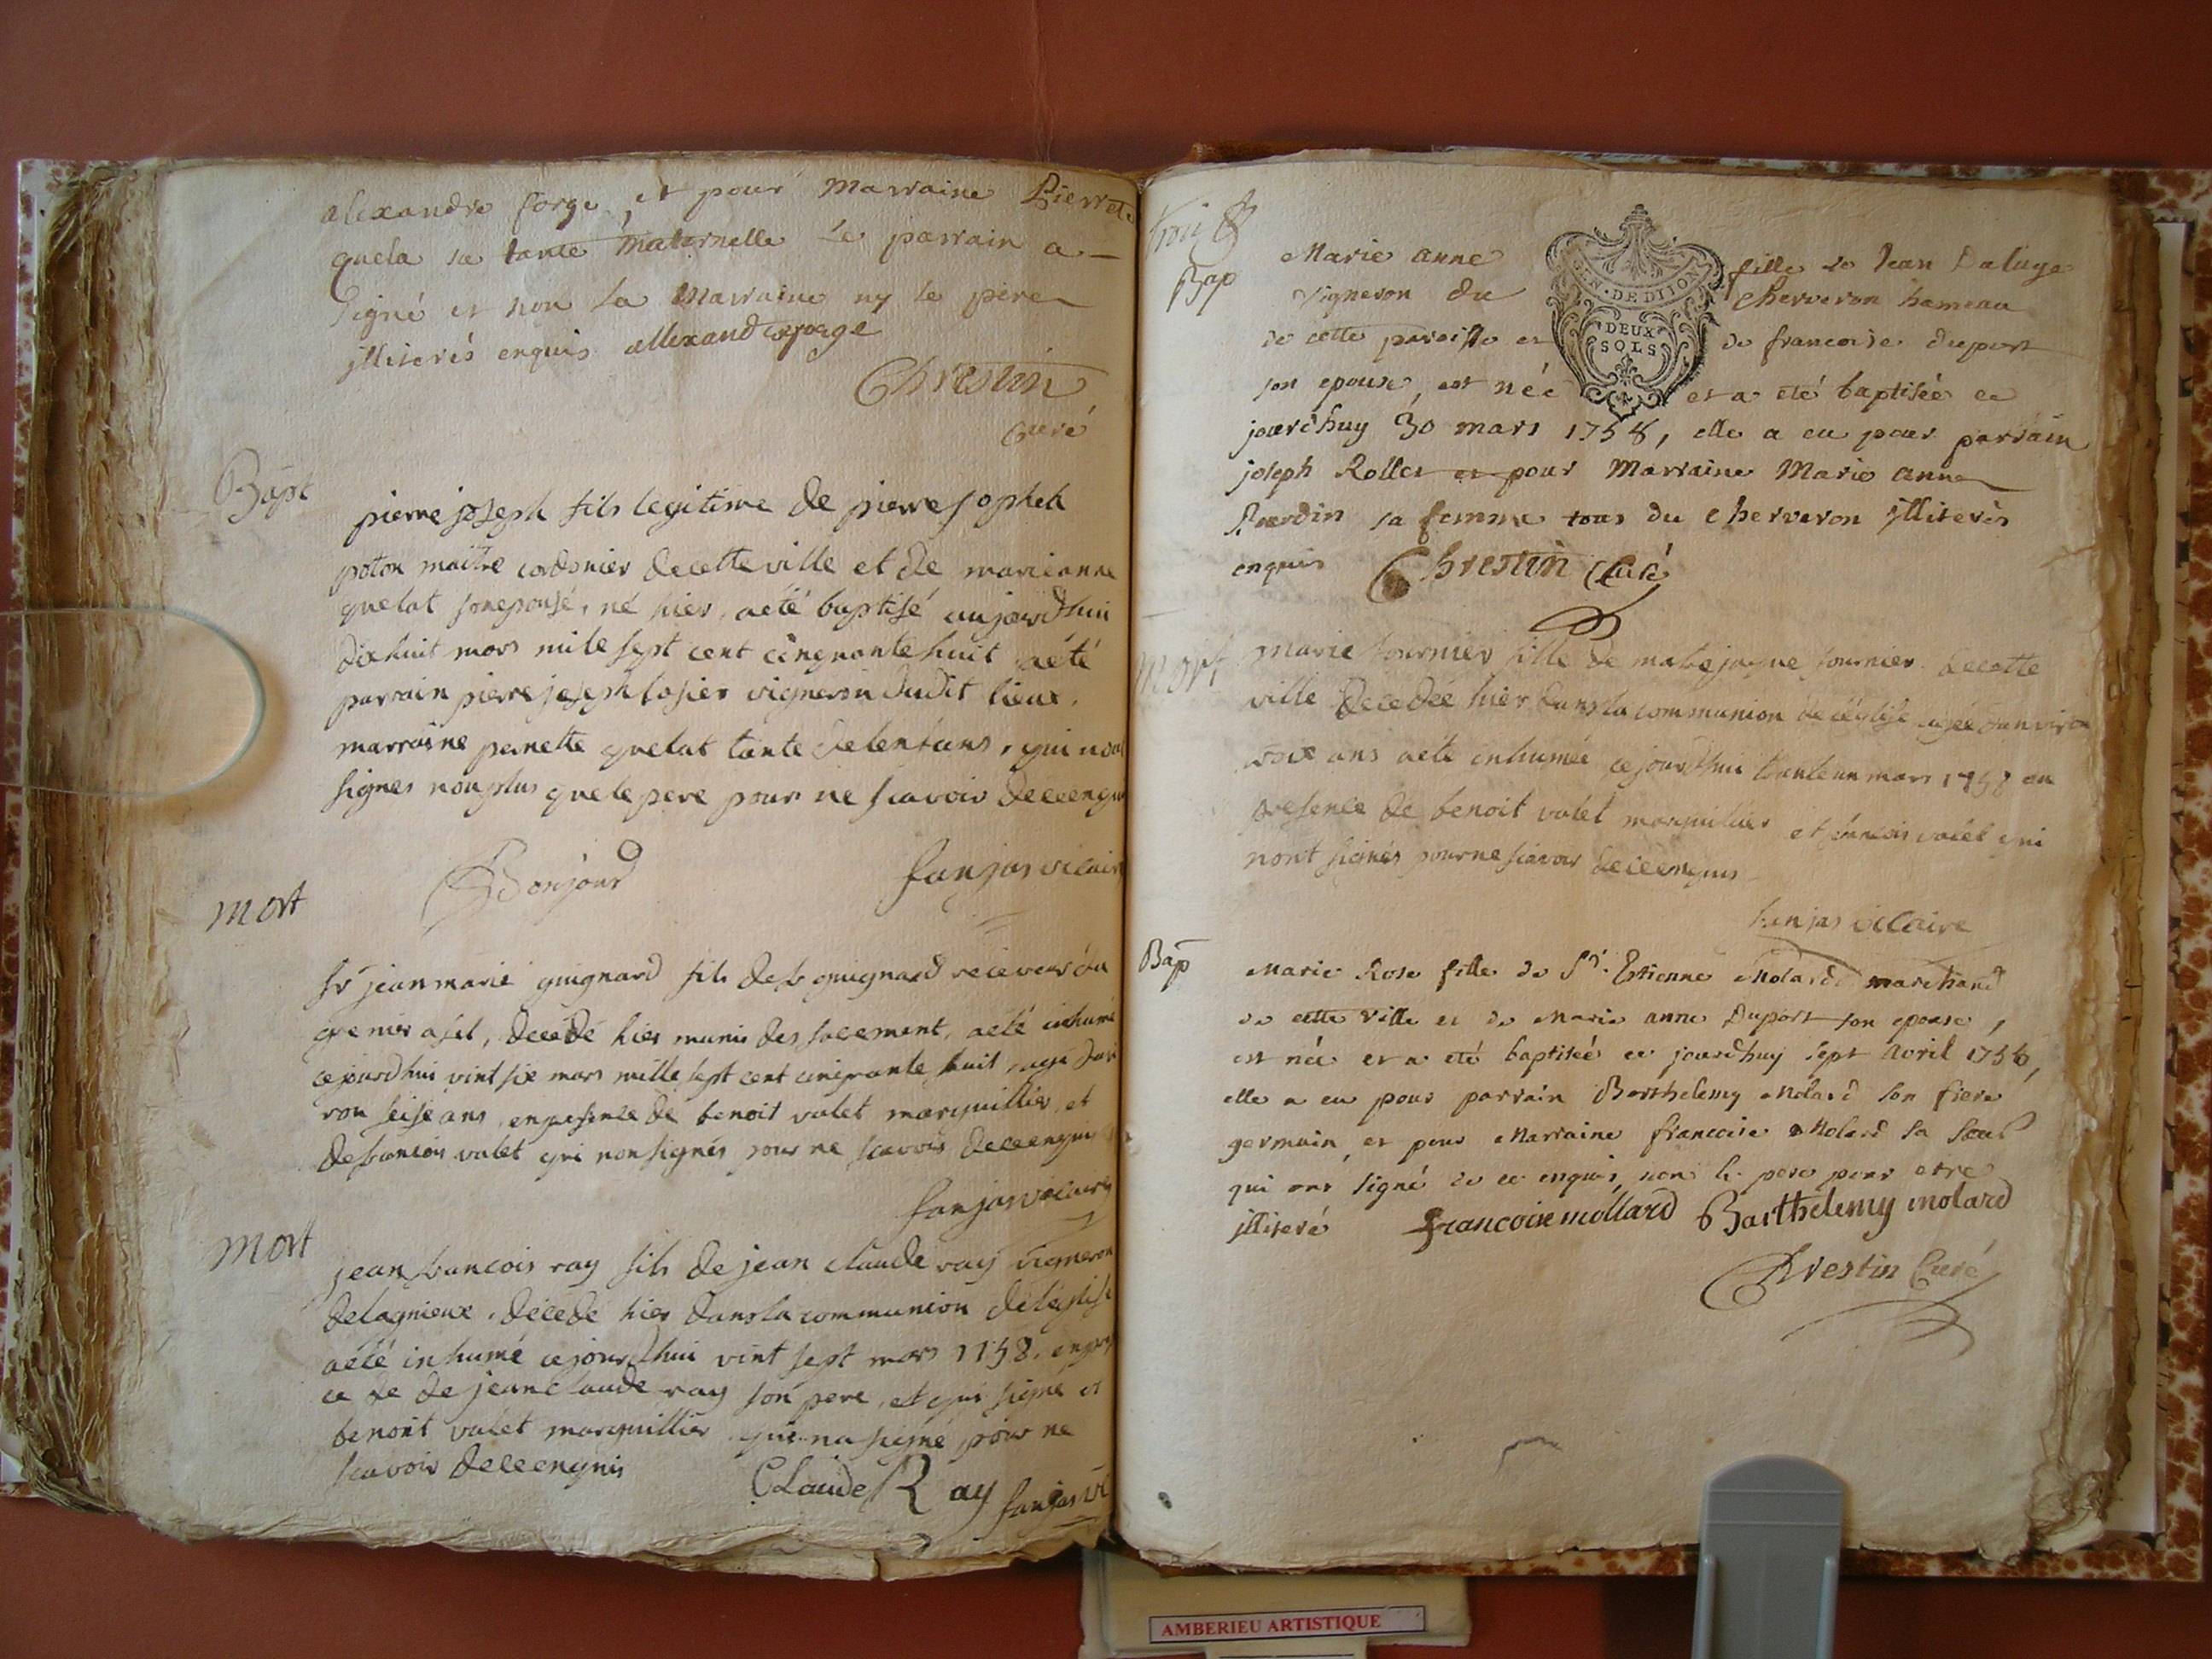 alexandre forge, et pour Marraine Pierrete
quela sa tante maternelle Le parrain a
signé et non la Marraine ny le pere
jlliterés enquis allexandre forge
Chrestin
Curé
Bapt
pierre joseph fils legitime de pierre jopheh
poton maitre cordonier decetteville et de marieanne
quelat sonepouse, né hier, aété baptisé aujourdhui
dixhuit mars mile sept cent cinquantehuit aété
parrain pierre joseph losier vigneron dudit lieux,
marraine pernette quelat tante delenfans, qui nont
signes nonplus quele pere pour ne scavoir deceenquis
Bonjour
fanjas vicaire
mort
sr jean marie guignard fils de sr guignard receveur du
grenier asel, decedé hier munis des sacrement, aété inhumé
cejourdhui vint six mars mille sept cent cinquante huit, agé danvi
ron seise ans, enpresence de benoit valet marguillier, et
defrancois valet qui nonsignés pour ne scavoir deceenquis
fanjas vicaire
mort
jean francois ray fils de jean claude ray vigneron
delagnieux, decede hier dansla communion deleglise
aété inhumé cejourdhui vint sept mars 1758, enpresen
ce de de jean claude ray son pere, et qui signé et
benoit valet marguillier qui na signé pour ne
scavoir deceenquis
Claude Ray fanjas vic
Bap
Marie anne fille de Jean Daluge
GEN. DE DIJON
Vigneron du Cherveron hameau
DEUX
SOLS
de cette paroisse et de francoise duport
son epouse, est née et a eté baptisée ce
jourdhuy 30 mars 1758, elle a eu pour parrain
joseph Rollet et pour Marraine Marie anne
sa femme tous du cherveron jlliterés
enquis Chrestin Curé
mort
marie fournier fille de jaque fournier decette
ville decedée hier dansla communion deléglise agée danviron
six ans aété inhumée cejourdhui trenteun mars 1758 en
presence de benoit valet marguillier et francois valet qui
nont signés pourne scavoir deceenquis
fanjas vicaire
Bap
Marie Rose fille de Sr. Etienne Molard marchand
de cette ville et de Marie anne Duport son epouse,
est née et a eté baptisée ce jourdhuy sept avril 1758,
elle a eu pour parrain Barthelemy Molard son frere
germain, et pour Marraine francoise Molard sa soeur
qui ont signé de ce enquis, non le pere pour etre
jlliteré francoise mollard Barthelemy molard
Chrestin Curé
AMBERIEU ARTISTIQUE